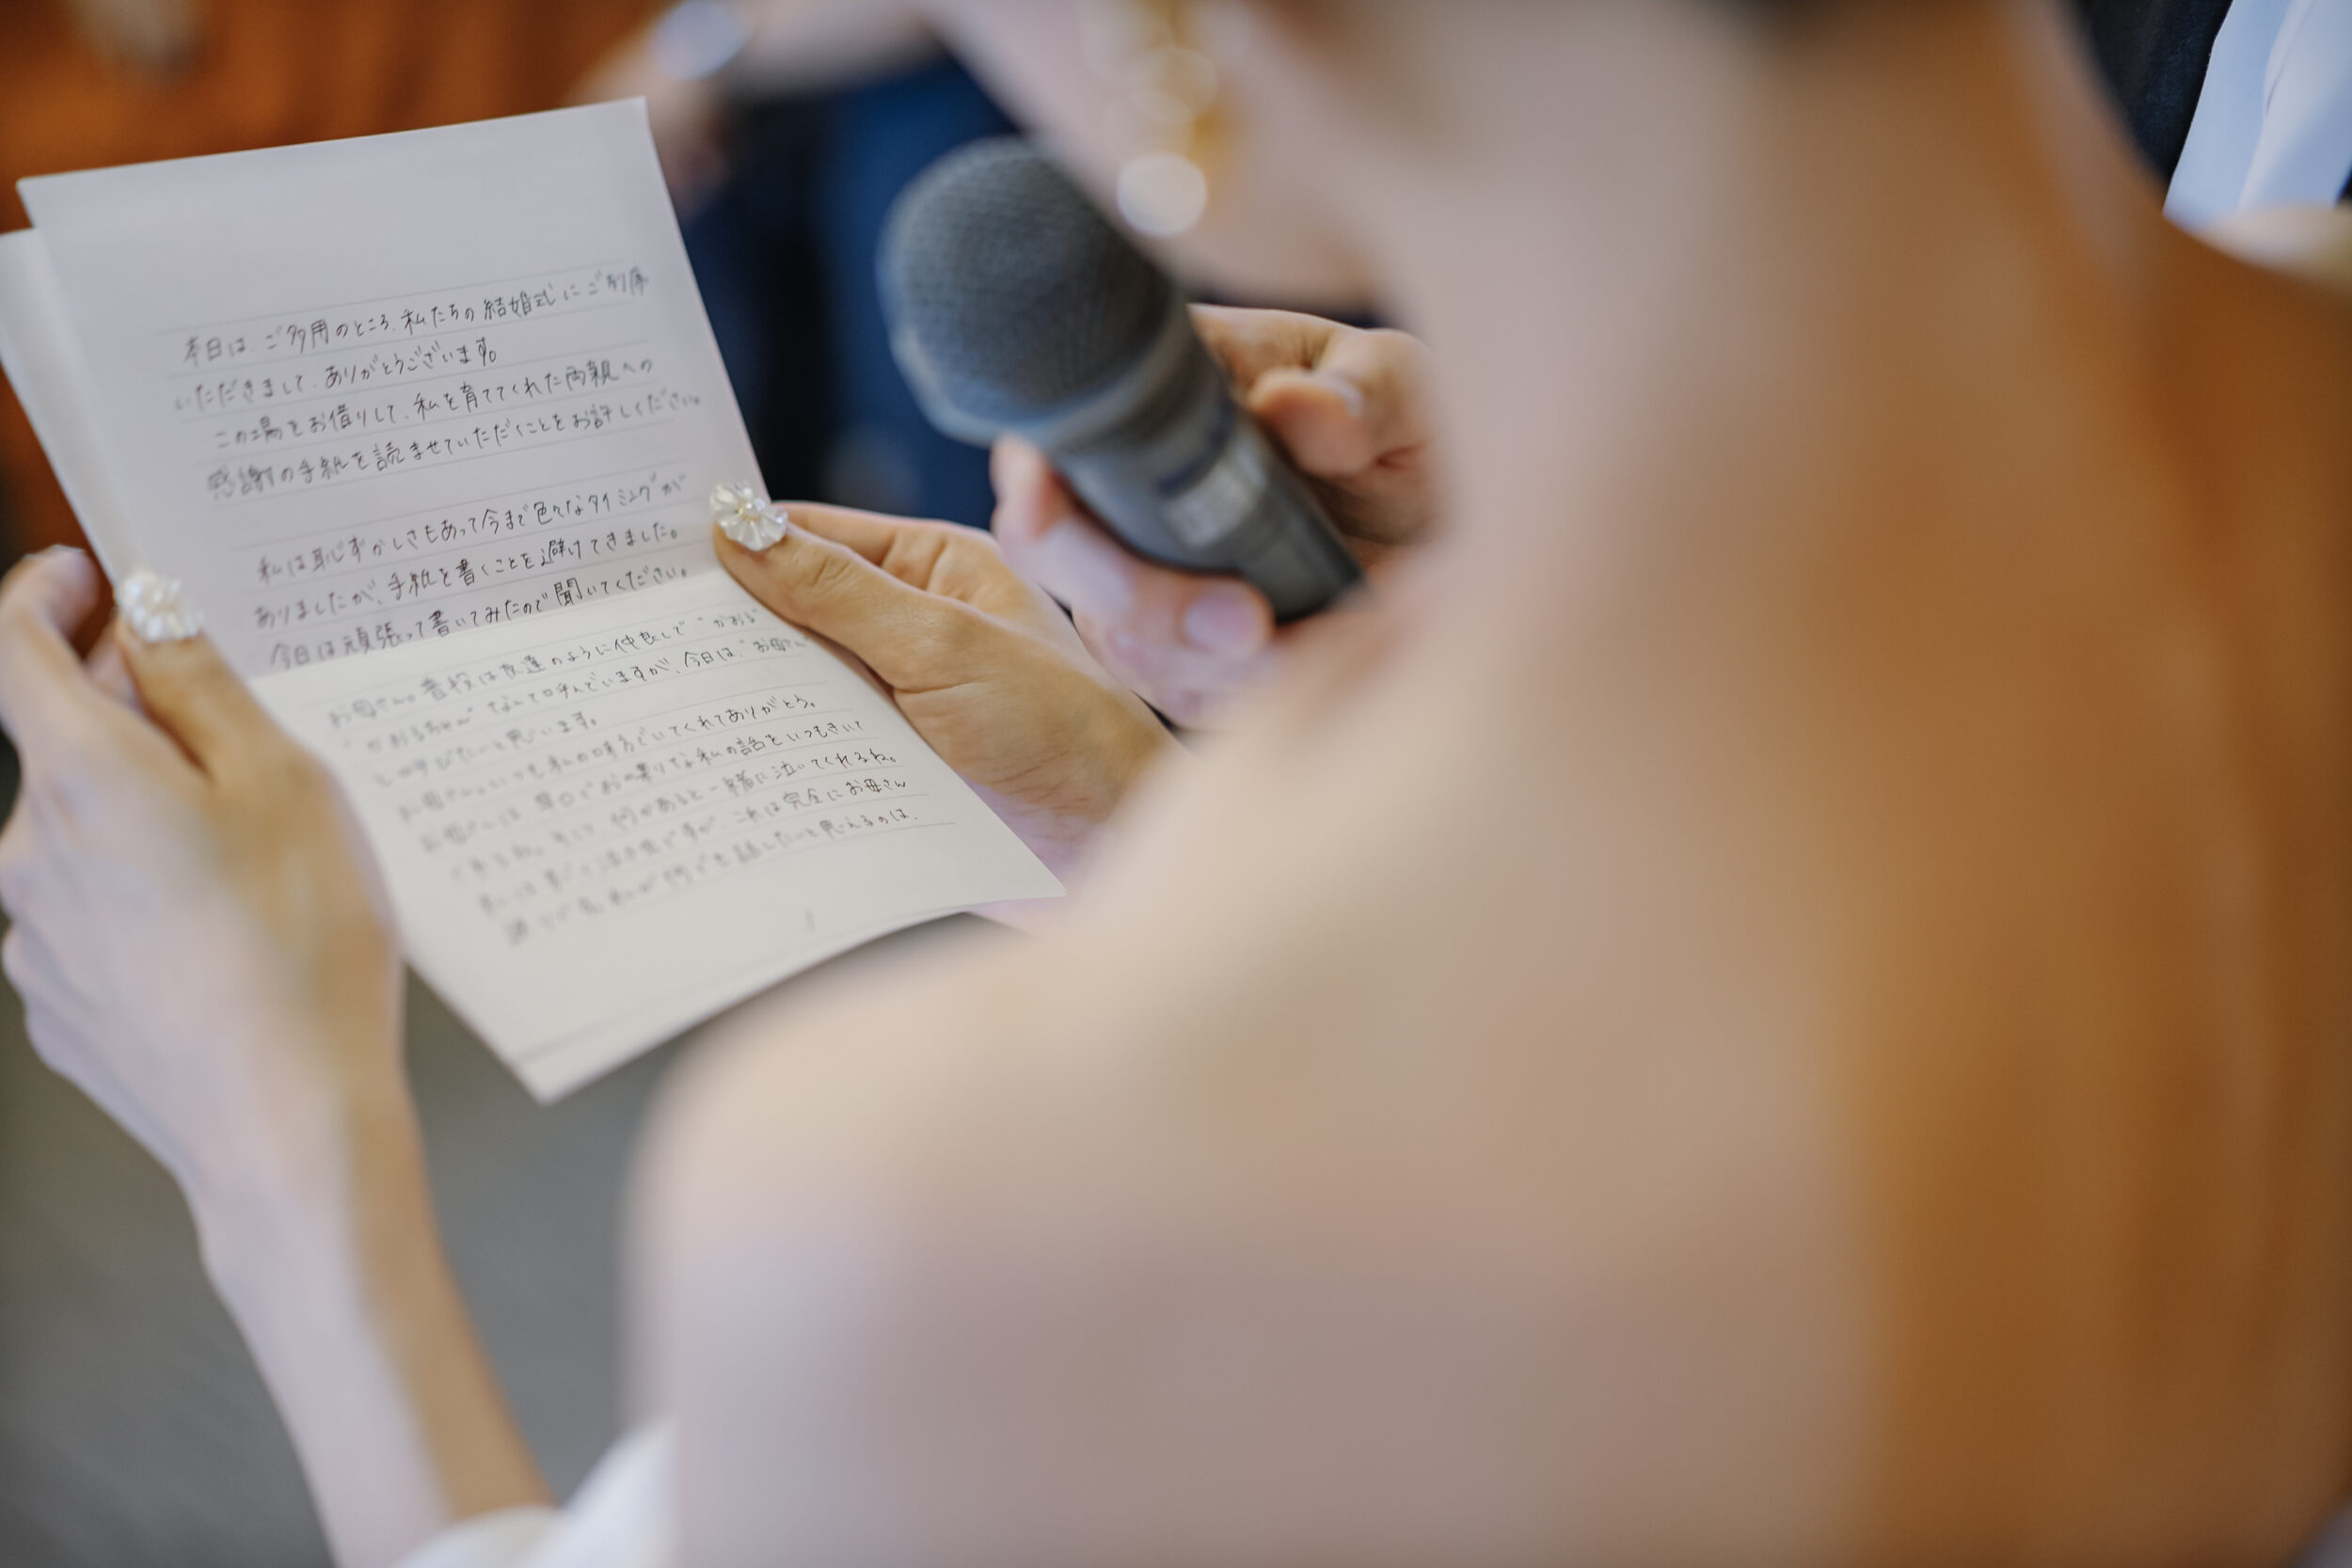 本日は、ご多用のところ、私たちの結婚式にご列席
いただきまして、ありがとうございます。
この場をお借りして、私を育ててくれた両親への
感謝の手紙を読ませていただくことをお許しください。
私は恥ずかしさもあって今まで色々なタイミングが
ありましたが、手紙を書くことを避けてきました。
今日は頑張って書いてみたので聞いてください。
お母さん。普段は友達のように仲良しで"かおる"
"かおるちゃん"なんて呼んでいますが、今日は、"お母さん
と呼びたいと思います。
お母さん。いつも私の味方でいてくれてありがとう。
お母さんは、早口でお喋りな私の話をいつもきいて
くれるね。そして、何かあると一緒に泣いてくれるね。
これは完全にお母さん
私が何でも話したいと思えるのは、